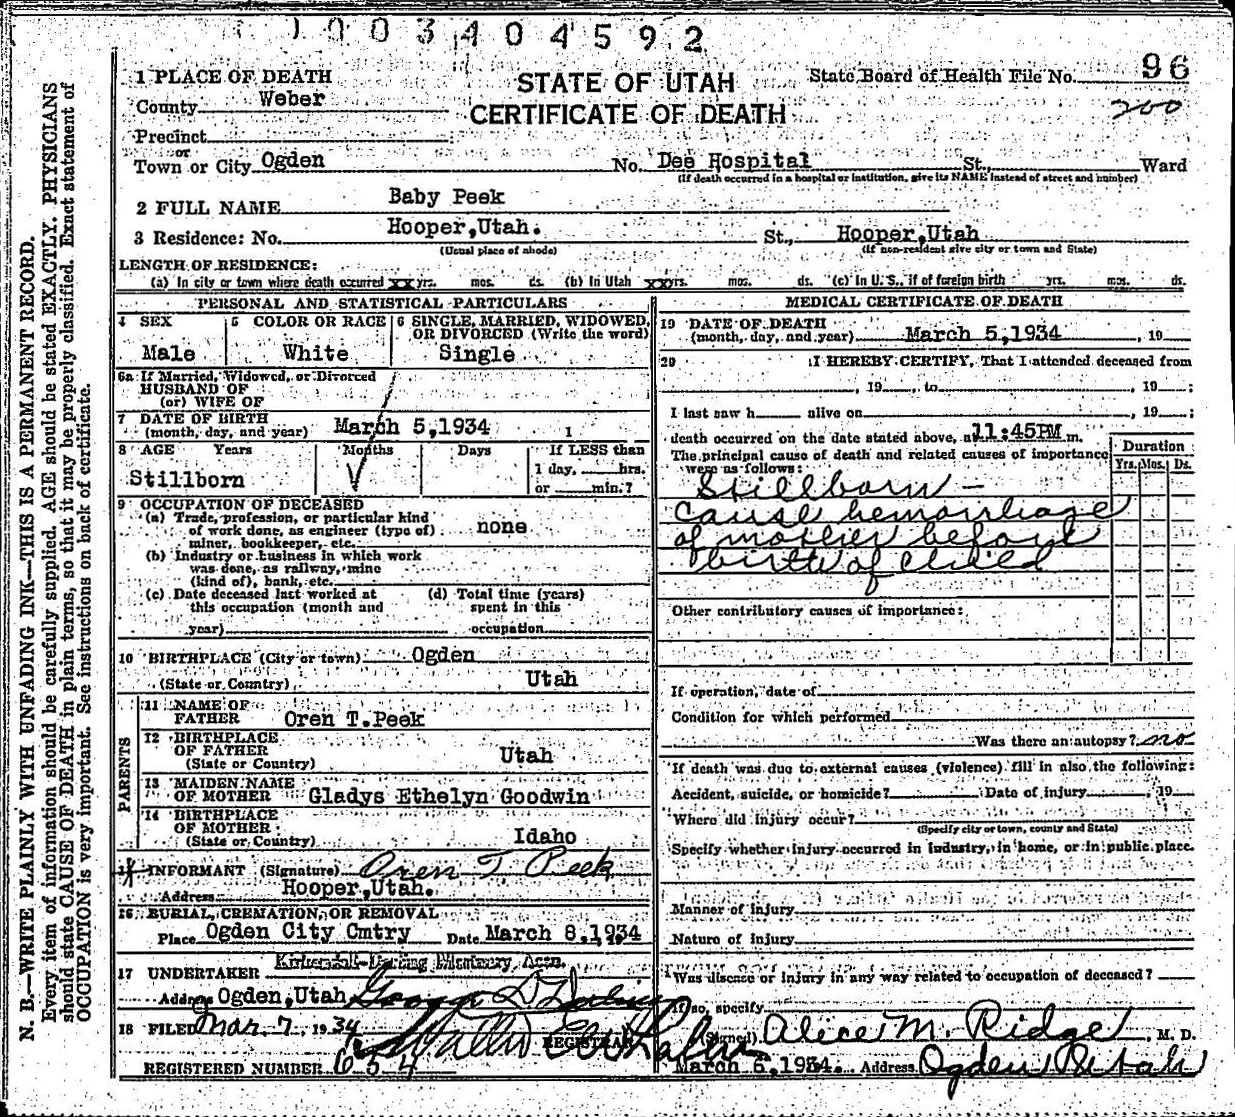 1003404592
STATE OF UTAH
CERTIFICATE OF DEATH
State Board of Health File No. 96
200
1 PLACE OF DEATH
County Weber
Precinct
or
Town or City Ogden No. Dee Hospital St., Ward
(If death occurred in a hospital or institution, give its NAME instead of street and number)
2 FULL NAME Baby Peek
3 Residence: No. Hooper,Utah. St., Hooper,Utah
(Usual place of abode) (If non-resident give city or town and State)
LENGTH OF RESIDENCE:
(a) In city or town where death occurred xx yrs. mos. ds. (b) In Utah xx yrs. mos. ds. (c) In U. S., if of foreign birth yrs. mos. ds.
PERSONAL AND STATISTICAL PARTICULARS
4 SEX 5 COLOR OR RACE 6 SINGLE, MARRIED, WIDOWED, OR DIVORCED (Write the word)
Male White Single
6a If Married, Widowed, or Divorced
HUSBAND OF
(or) WIFE OF
7 DATE OF BIRTH
(month, day, and year) March 5,1934 1
8 AGE Years Months Days If LESS than
1 day, hrs.
Stillborn or min.?
9 OCCUPATION OF DECEASED
(a) Trade, profession, or particular kind
of work done, as engineer (type of) none
miner, bookkeeper, etc.
(b) Industry or business in which work
was done, as railway, mine
(kind of), bank, etc.
(c) Date deceased last worked at (d) Total time (years)
this occupation (month and spent in this
year) occupation
10 BIRTHPLACE (City or town) Ogden
(State or Country) Utah
PARENTS
11 NAME OF
FATHER Oren T.Peek
12 BIRTHPLACE
OF FATHER Utah
(State or Country)
13 MAIDEN NAME
OF MOTHER Gladys Ethelyn Goodwin
14 BIRTHPLACE
OF MOTHER
(State or Country) Idaho
INFORMANT (Signature) Oren T Peek
Address Hooper,Utah.
16 BURIAL, CREMATION, OR REMOVAL
Place Ogden City Cmtry Date March 8,1934
17 UNDERTAKER
Address Ogden,Utah
18 FILED Mar. 7, 1934
REGISTRAR
REGISTERED NUMBER 654
MEDICAL CERTIFICATE OF DEATH
19 DATE OF DEATH
(month, day, and year) March 5,1934, 19
20 I HEREBY CERTIFY, That I attended deceased from
, 19 , to , 19 ;
I last saw h alive on , 19 ;
death occurred on the date stated above, a 11:45PM m.
The principal cause of death and related causes of importance
were as follows:
Duration
Yrs. Mos. Ds.
Stillborn -
Cause hemorrhage
of mother before
birth of child
Other contributory causes of importance:
If operation, date of
Condition for which performed
Was there an autopsy? no
If death was due to external causes (violence) fill in also the following:
Accident, suicide, or homicide? Date of injury , 19
Where did injury occur?
(Specify city or town, county and State)
Specify whether injury occurred in industry, in home, or in public place.
Manner of injury
Nature of injury
Was disease or injury in any way related to occupation of deceased?
If so, specify
(Signed) Alice M. Ridge, M. D.
March 6,1934. Address Ogden Utah
N. B.—WRITE PLAINLY WITH UNFADING INK—THIS IS A PERMANENT RECORD.
Every item of information should be carefully supplied. AGE should be stated EXACTLY. PHYSICIANS
should state CAUSE OF DEATH in plain terms, so that it may be properly classified. Exact statement of
OCCUPATION is very important. See instructions on back of certificate.